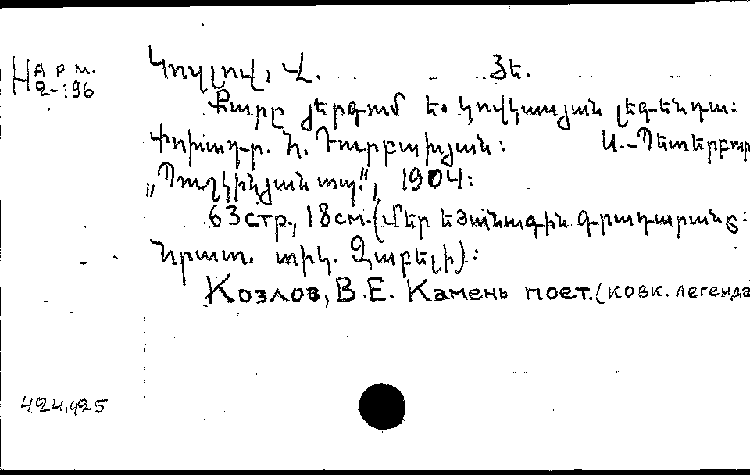 Н Арм.
2-196
Կոզլով, Վ. Յե.
Քարը յերգում ե. կովկասյան լեգենդա:
Փոխադր. Ն. Դուրբախյան: Ս.-Պետերբուր
„Պուշկինյան տպ.", 1904:
63 стр., 18 см. (Մեր եժանագին գրադարան 5:
Հրատ. տիկ. Զաբելի):
Козлов, В.Е. Камень поет. (ковк. легенда
424,425